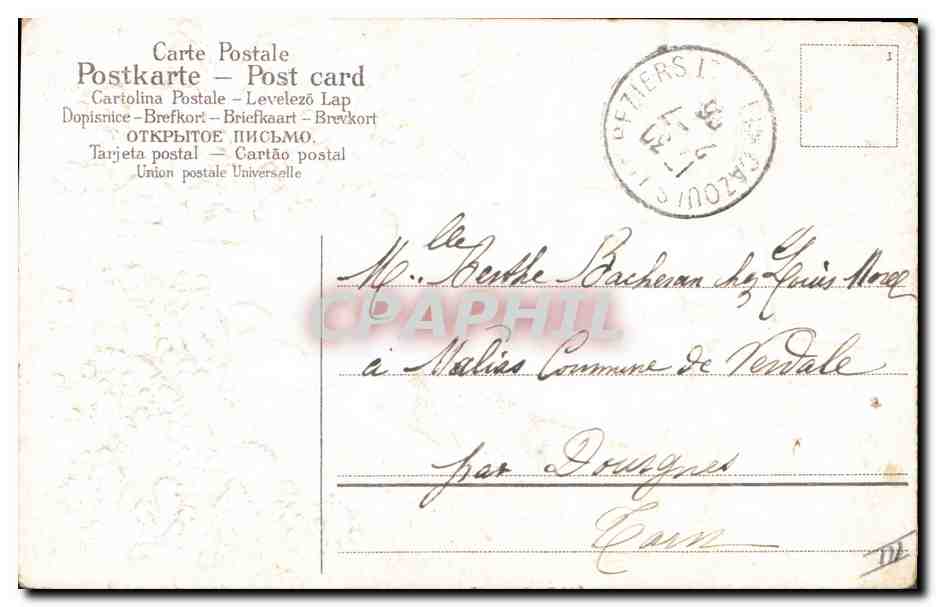 Carte Postale
Postkarte — Post card
Cartolina Postale – Levelező Lap
Dopisnice – Brefkort – Briefkaart – Brevkort
ОТКРЫТОЕ ПИСЬМО.
Tarjeta postal — Cartão postal
Union postale Universelle
1
BEZIERS
CAZOULS
Mlle Berthe Bacheran chez Louis
CPAPHIL
à Malias Commune de Verdale
par Dourgnes
Tarn